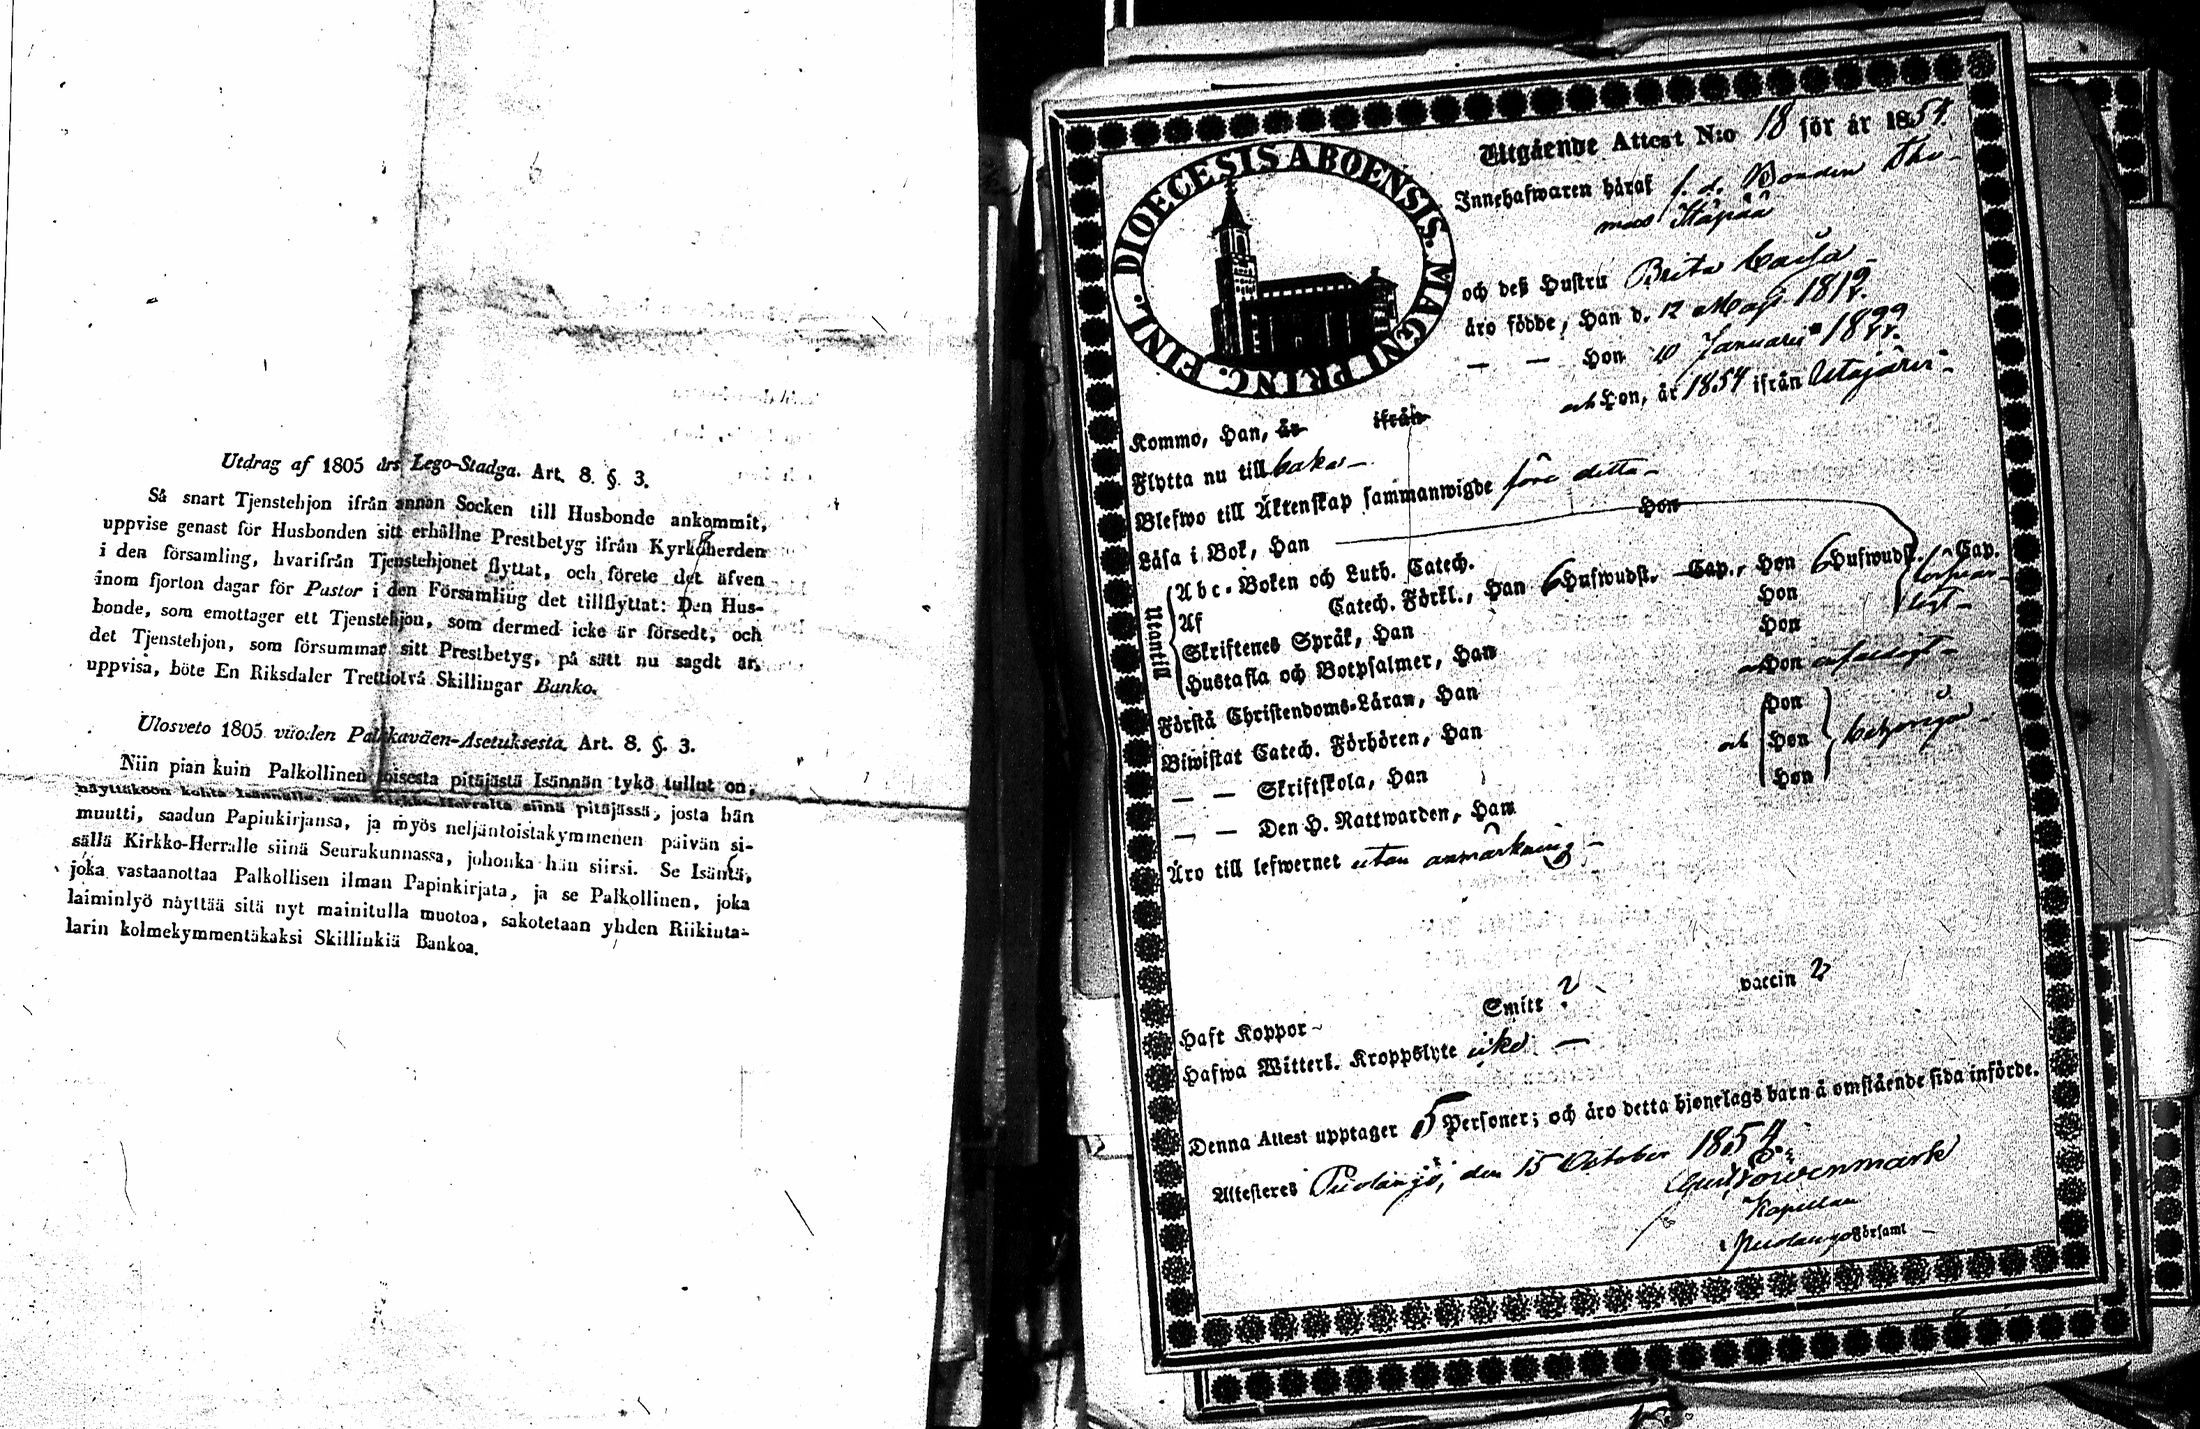 Utdrag af 1805 års Lego-Stadga. Art. 8. §. 3.
Så snart Tjenstehjon ifrån annan Socken till Husbonde ankommit,
uppvise genast för Husbonden sitt erhållne Prestbetyg ifrån Kyrkoherden
i den församling, hvarifrån Tjenstehjonet flyttat, och förete det äfven
inom fjorton dagar för Pastor i den Församling det tillflyttat: Den Hus-
bonde, som emottager ett Tjenstehjon, som dermed icke är försedt, och
det Tjenstehjon, som försummar sitt Prestbetyg, på sätt nu sagdt är,
uppvisa, böte En Riksdaler Trettiotvå Skillingar Banko.
Ulosveto 1805 vuoden Palkkaväen-Asetuksesta. Art. 8. §. 3.
Niin pian kuin Palkollinen toisesta pitäjästä Isännän tykö tullut on,
näyttäköön kohta Isännälle, sen Kirkko-Herralta siinä pitäjässä, josta hän
muutti, saadun Papinkirjansa, ja myös neljäntoistakymmenen päivän si-
sällä Kirkko-Herralle siinä Seurakunnassa, johonka hän siirsi. Se Isäntä,
joka vastaanottaa Palkollisen ilman Papinkirjata, ja se Palkollinen, joka
laiminlyö näyttää sitä nyt mainitulla muotoa, sakotetaan yhden Riikinta-
larin kolmekymmentäkaksi Skillinkiä Bankoa.
DIOECESIS ABOENSIS. MAGNI PRINC. FINL.
Utgående Attest N:o 18 för år 1854.
Innehafwaren häraf f. d. Bonden Tho-
mas Itäpää
och deß Hustru Brita Caisa
äro födde, Han d. 12 Maji 1819.
— — Hon 10 Januarii 1822.
Kommo, Han, år ifrån och Hon, år 1854 ifrån Utajärvi
Flytta nu till bakas
Blefwo till Äktenskap sammanwigde före detta
Läsa i Bok, Han Hon
Utantill
Abc-Boken och Luth. Catech.
Af Catech. Förkl., Han 6 Hufwudst. Cap., Hon 6 Hufwudst. Cap.
Skriftenes Språk, Han Hon
Hustafla och Botpsalmer, Han Hon
Förstå Christendoms-Läran, Han och Hon
Biwistat Catech. Förhören, Han Hon
— — Skriftskola, Han och Hon
— — Den H. Nattwarden, Han Hon
Äro till lefwernet utan anmärkning
Haft Koppor Smitt ? vaccin ?
Hafwa Witterl. Kroppslyte icke
Denna Attest upptager 5 Personer; och äro detta hjonelags barn å omstående sida införde.
Attesteres Puolango, den 15 October 1854.
Kapellan
i Puolango Församl